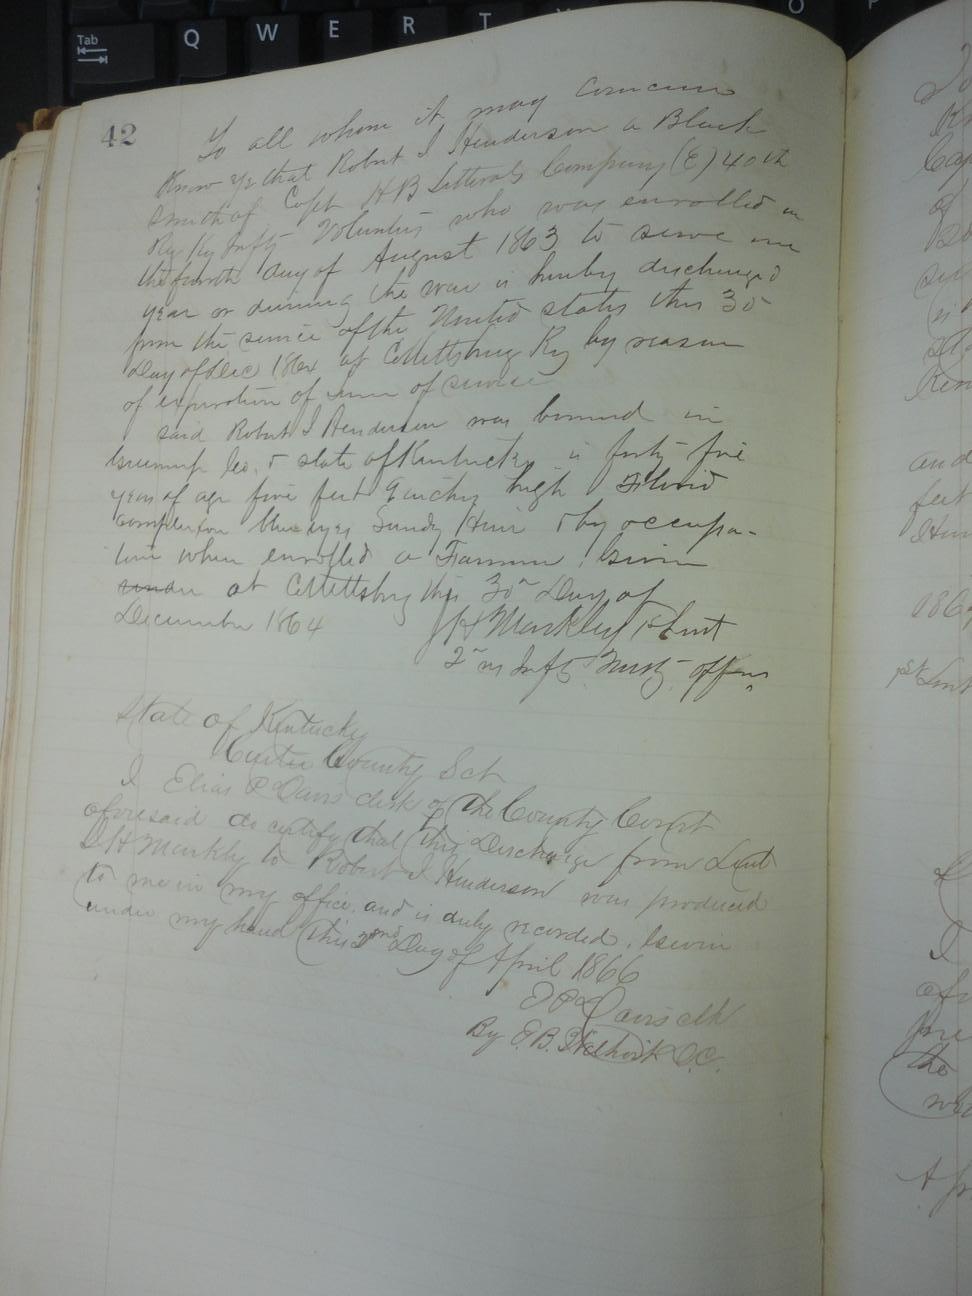 Tab
Q W E R T O P
42
To all whom it may concern
Know ye that Robert I Henderson a Black
smith of Capt H B Litterals Company (E) 40th
Rg Ky Infty Volunters who was enrolled on
the fourth day of August 1863 to serve one
year or during the war is hereby discharged
from the service of the United states this 30
Day of Dec 1864 at Catlettsburg Ky by reason
of expiration of of service
said Robert I Henderson was borned in
Greenup Co. & state of Kentucky is forty five
years of age five feet 9 inches high Florid
complexion blue eyes Sandy Hair & by occupa-
tion when enrolled a Farmer. Given
at Catlettsburg this 30" Day of
December 1864 J H Markley 1st Lieut
2" Infty Musty offer
State of Kentucky
Carter County Sct
I Elias P Davis clerk of the County Court
aforesaid do certify that this Discharge from Lieut
J H Markly to Robert I Henderson was produced
to me in my office and is duly recorded. Given
under my hand this 2nd Day of April 1866
E P Davis clk
By E. B. D.C.
and
feet
1864
I
the